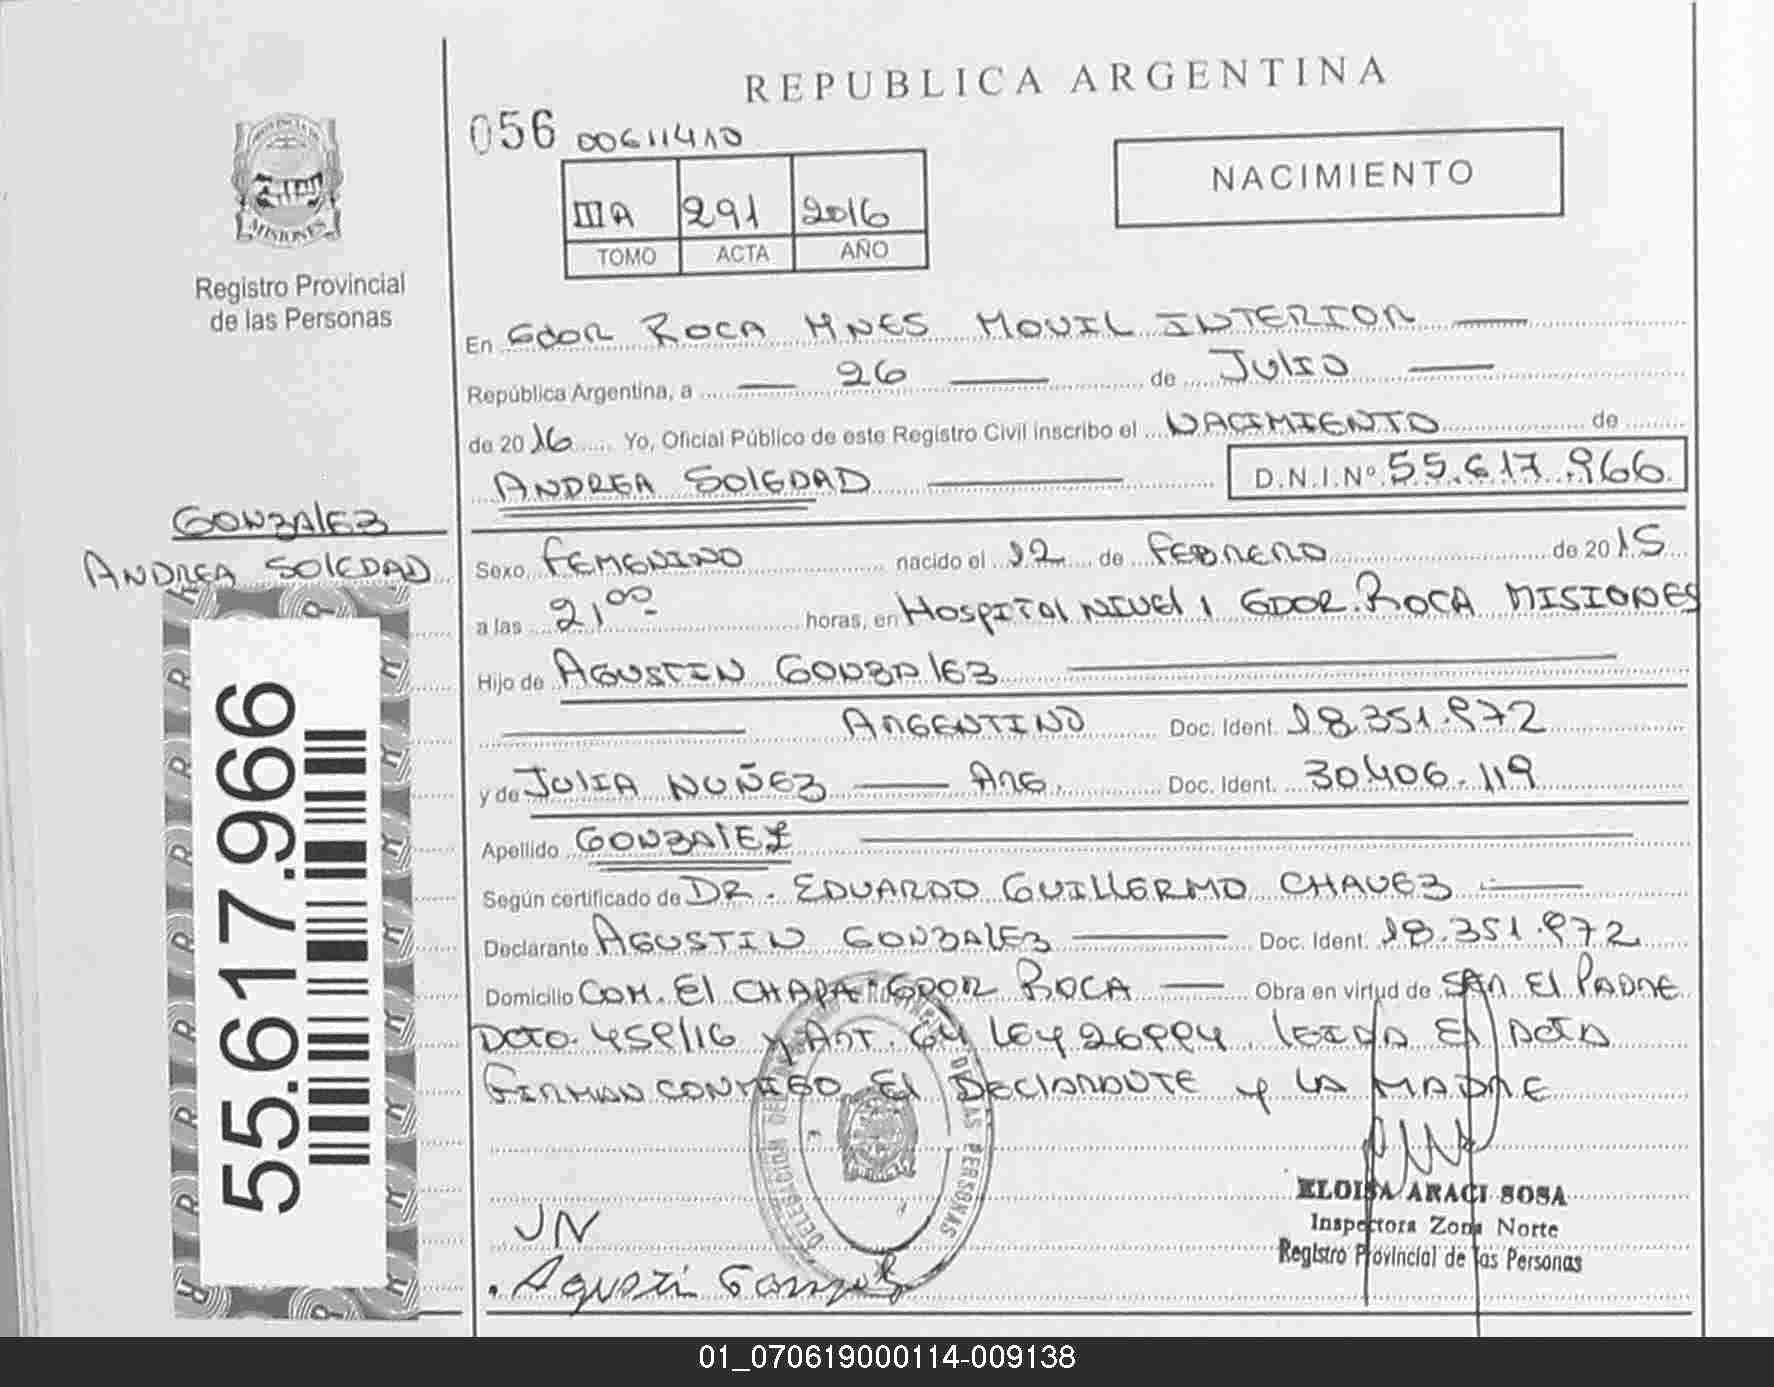 REPUBLICA ARGENTINA
056 00611410
NACIMIENTO
IIIA 291 2016
TOMO ACTA AÑO
PROVINCIA DE
MISIONES
Registro Provincial
de las Personas
En GDOR ROCA MNES MOVIL INTERIOR
República Argentina, a 26 de JULIO
de 2016 Yo, Oficial Público de este Registro Civil inscribo el NACIMIENTO de
ANDREA SOLEDAD D.N.I.Nº 55.617.966
GONZALEZ
ANDREA SOLEDAD
Sexo FEMENINO nacido el 12 de FEBRERO de 2015
a las 21 00 horas, en HOSPITAL NIVEL I GDOR. ROCA MISIONES
Hijo de AGUSTIN GONZALEZ
ARGENTINO Doc. Ident. 18.351.972
y de JULIA NUÑEZ ARG. Doc. Ident. 30.406.119
Apellido GONZALEZ
Según certificado de DR. EDUARDO GUILLERMO CHAVEZ
Declarante AGUSTIN GONZALEZ Doc. Ident. 18.351.972
Domicilio COM. EL CHAPA GDOR ROCA Obra en virtud de SER EL PADRE
DCTO. 459/16 Y ART. 64 LEY 26994. LEIDA EL ACTA
FIRMAN CONMIGO EL DECLARANTE Y LA MADRE
55.617.966
DELEGACION DE LAS PERSONAS
JN
Agustin Gonzalez
ELOISA ARACI SOSA
Inspectora Zona Norte
Registro Provincial de las Personas
01_070619000114-009138